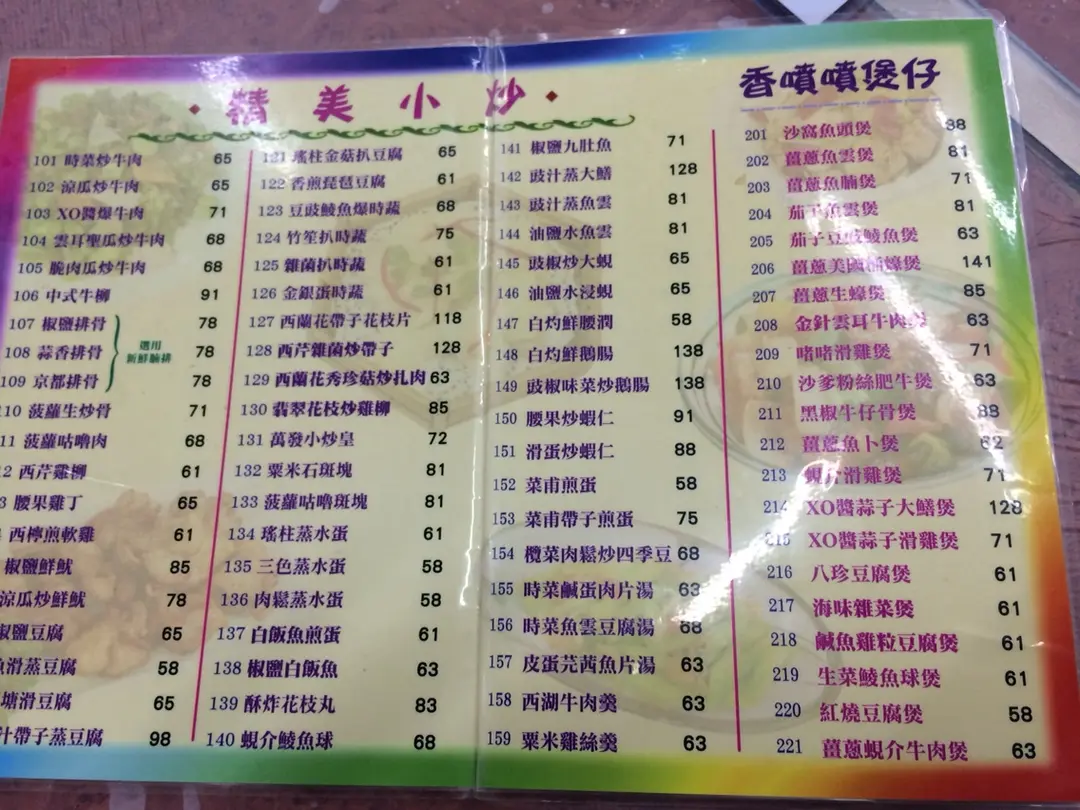 精美小炒
101 時菜炒牛肉 65
102 涼瓜炒牛肉 65
103 XO醬爆牛肉 71
104 雲耳聖瓜炒牛肉 68
105 脆肉瓜炒牛肉 68
106 中式牛柳 91
107 椒鹽排骨 78
108 蒜香排骨 78
109 京都排骨 78
選用
新鮮腩排
110 菠蘿生炒骨 71
11 菠蘿咕嚕肉 68
2 西芹雞柳 61
3 腰果雞丁 65
西檸煎軟雞 61
椒鹽鮮魷 85
涼瓜炒鮮魷 78
椒鹽豆腐 65
魚滑蒸豆腐 58
塘滑豆腐 65
汁帶子蒸豆腐 98
121 瑤柱金菇扒豆腐 65
122 香煎琵琶豆腐 61
123 豆豉鯪魚爆時蔬 68
124 竹笙扒時蔬 75
125 雜菌扒時蔬 61
126 金銀蛋時蔬 61
127 西蘭花帶子花枝片 118
128 西芹雜菌炒帶子 128
129 西蘭花秀珍菇炒扎肉 63
130 翡翠花枝炒雞柳 85
131 萬發小炒皇 72
132 粟米石斑塊 81
133 菠蘿咕嚕斑塊 81
134 瑤柱蒸水蛋 61
135 三色蒸水蛋 58
136 肉鬆蒸水蛋 58
137 白飯魚煎蛋 61
138 椒鹽白飯魚 63
139 酥炸花枝丸 83
140 蜆介鯪魚球 68
141 椒鹽九肚魚 71
142 豉汁蒸大鱔 128
143 豉汁蒸魚雲 81
144 油鹽水魚雲 81
145 豉椒炒大蜆 65
146 油鹽水浸蜆 65
147 白灼鮮腰潤 58
148 白灼鮮鵝腸 138
149 豉椒味菜炒鵝腸 138
150 腰果炒蝦仁 91
151 滑蛋炒蝦仁 88
152 菜甫煎蛋 58
153 菜甫帶子煎蛋 75
154 欖菜肉鬆炒四季豆 68
155 時菜鹹蛋肉片湯 63
156 時菜魚雲豆腐湯 68
157 皮蛋芫茜魚片湯 63
158 西湖牛肉羹 63
159 粟米雞絲羹 63
香噴噴煲仔
201 沙窩魚頭煲 88
202 薑蔥魚雲煲 81
203 薑蔥魚腩煲 71
204 茄子魚雲煲 81
205 茄子豆豉鯪魚煲 63
206 薑蔥美國桶蠔煲 141
207 薑蔥生蠔煲 85
208 金針雲耳牛肉煲 63
209 啫啫滑雞煲 71
210 沙爹粉絲肥牛煲 63
211 黑椒牛仔骨煲 88
212 薑蔥魚卜煲 62
213 蜆介滑雞煲 71
214 XO醬蒜子大鱔煲 128
215 XO醬蒜子滑雞煲 71
216 八珍豆腐煲 61
217 海味雜菜煲 61
218 鹹魚雞粒豆腐煲 61
219 生菜鯪魚球煲 61
220 紅燒豆腐煲 58
221 薑蔥蜆介牛肉煲 63